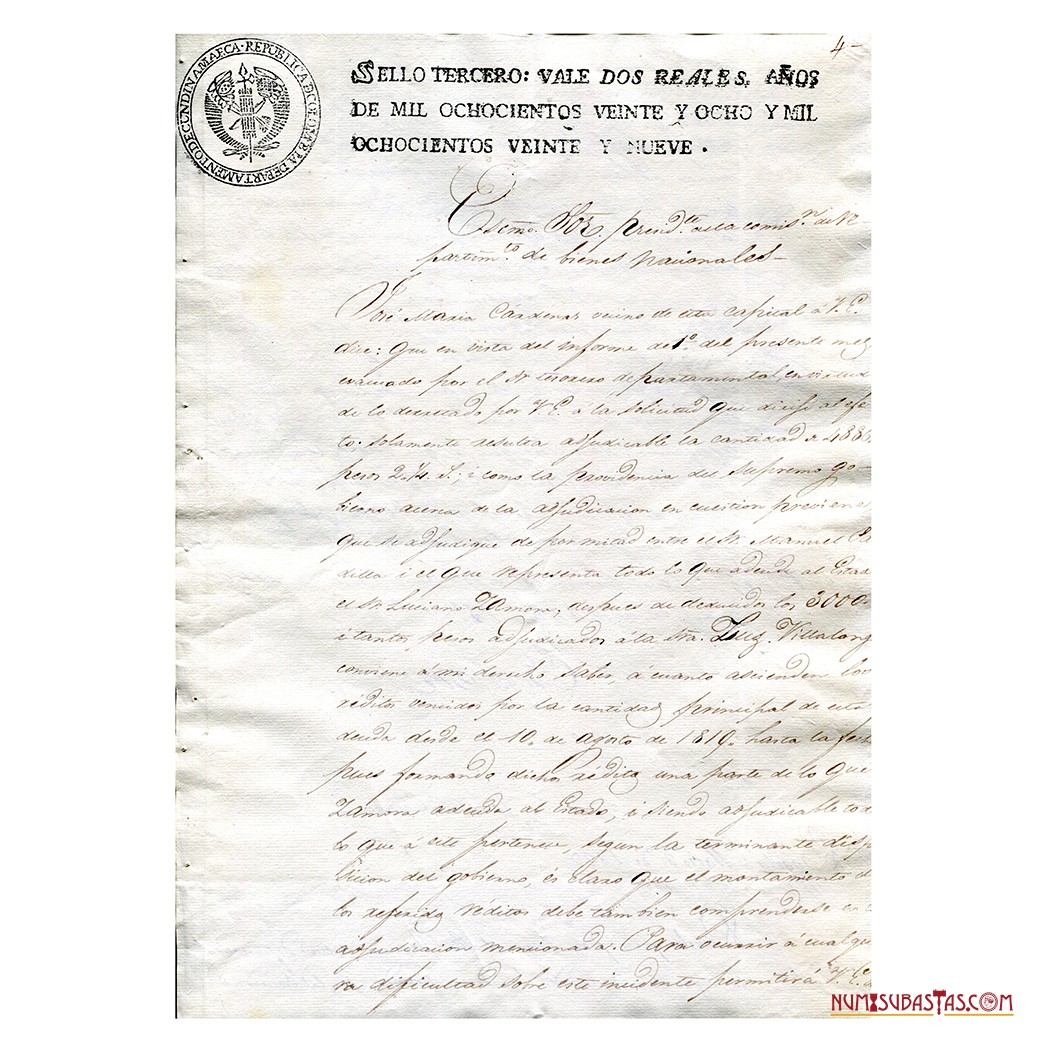 4-
REPUBLICA DE COLOMBIA DEPARTAMENTO DE CUNDINAMARCA
SELLO TERCERO: VALE DOS REALES, AÑOS
DE MIL OCHOCIENTOS VEINTE Y OCHO Y MIL
OCHOCIENTOS VEINTE Y NUEVE.
Escmo. Sor. de la comisn. de re-
partimto. de bienes nacionales-
José Maria Cárdenas vecino de esta capital á V.E.
dice: Que en vista del informe de 1º del presente mes
evacuado por el Sr tesorero departamental, en virtud
de lo decretado por V.E. á la solicitud que dirifi al efe
to. solamente resulta adjudicable la cantidad de 4886
pesos i como la providencia del supremo go-
bierno acerca de la adjudicacion en cuestion previene
que se adjudique de por mitad entre el Sr. Manuel Pa
dilla i el que representa todo lo que adeuda al Estad
el Sr. Luciano Zamora, despues de deducidos los 3000
i tantos pesos adjudicados á la Sra. Luz Villalong
conviene á mi derecho saber, á cuanto ascienden los
réditos vencidos por la cantidad principal de esta
deuda desde el 10. de agosto de 1819. hasta la fech
pues formando dichos réditos una parte de lo que
Zamora adeuda al Estado, i siendo adjudicable tod
lo que á este pertenece, segun la terminante disp
sicion del gobierno, és claro que el montamiento d
los referidos réditos debe tambien comprenderse en
adjudicacion mencionada. Para ocurrir á cualqu
ra dificultad sobre este incidente permitirá V.E.
NUMISUBASTAS.COM